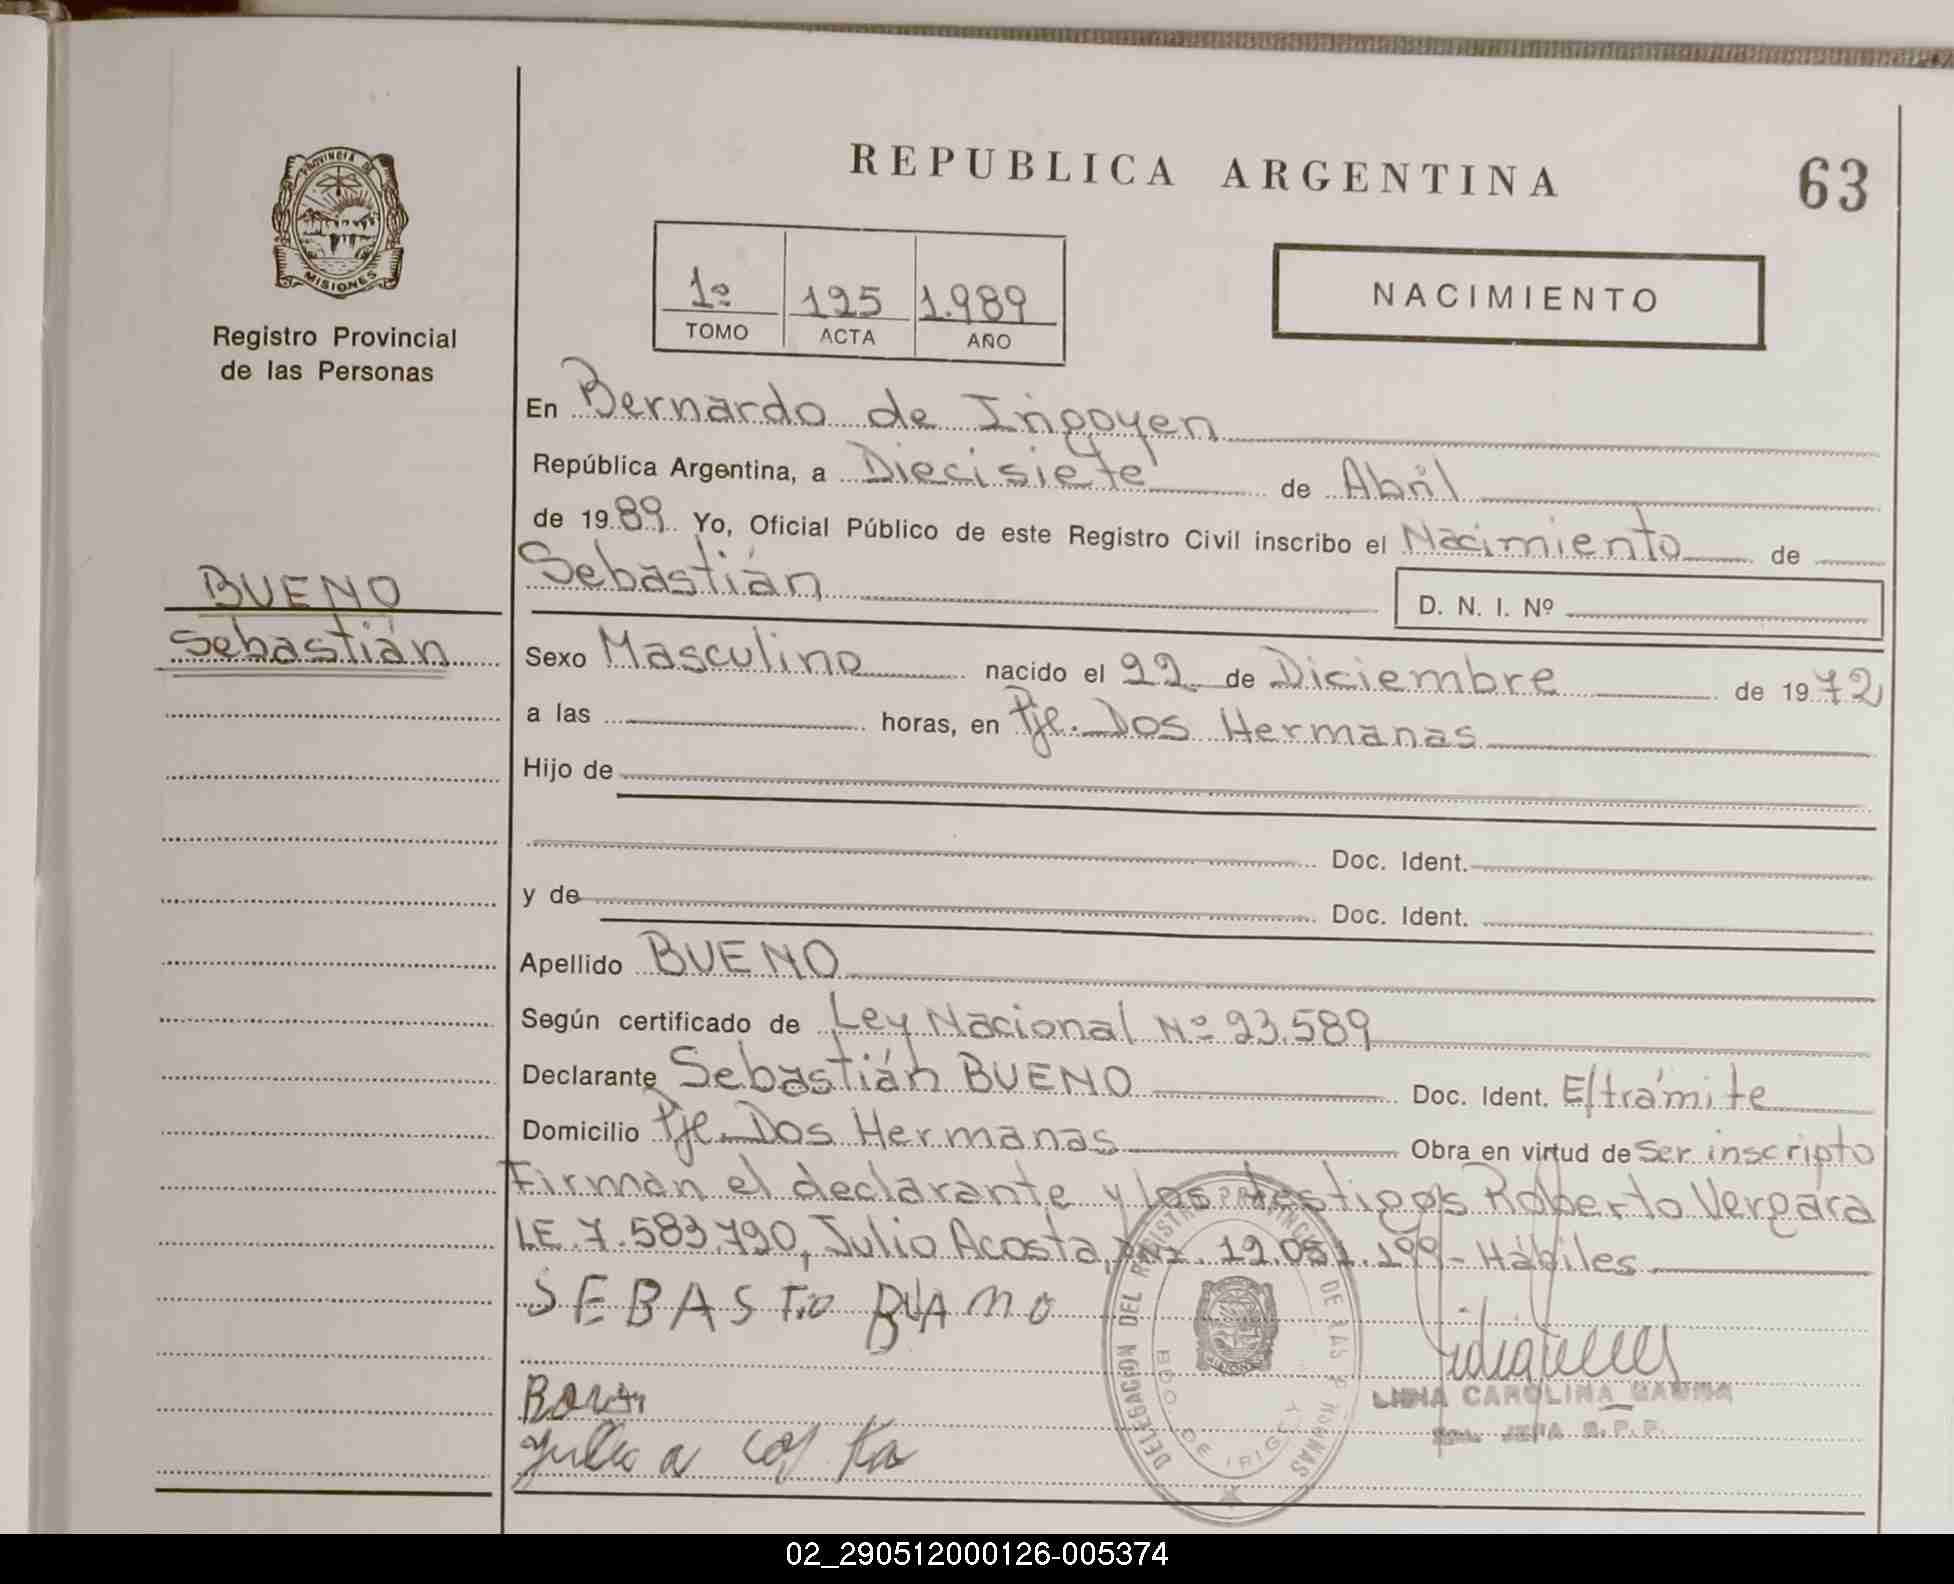 REPUBLICA ARGENTINA
63
PROVINCIA DE
MISIONES
Registro Provincial
de las Personas
1º 125 1.989
TOMO ACTA AÑO
NACIMIENTO
En Bernardo de Irigoyen
República Argentina, a Diecisiete de Abril
de 1989 Yo, Oficial Público de este Registro Civil inscribo el Nacimiento de
Sebastián
D. N. I. Nº
BUENO
Sebastián
Sexo Masculino nacido el 22 de Diciembre de 1972
a las horas, en Pje. Dos Hermanas
Hijo de
Doc. Ident.
y de Doc. Ident.
Apellido BUENO
Según certificado de Ley Nacional Nº 23.589
Declarante Sebastián BUENO Doc. Ident. E/trámite
Domicilio Pje. Dos Hermanas Obra en virtud de Ser inscripto
Firman el declarante y los testigos Roberto Vergara
LE. 7.583.790, Julio Acosta, 12.051.199 - Hábiles
SEBASTIO BUAMO
DELEGACION DEL REGISTRO PROVINCIAL DE LAS PERSONAS
BDO. DE IRIGOYEN
CAROLINA
JEFA R.P.P.
02_290512000126-005374